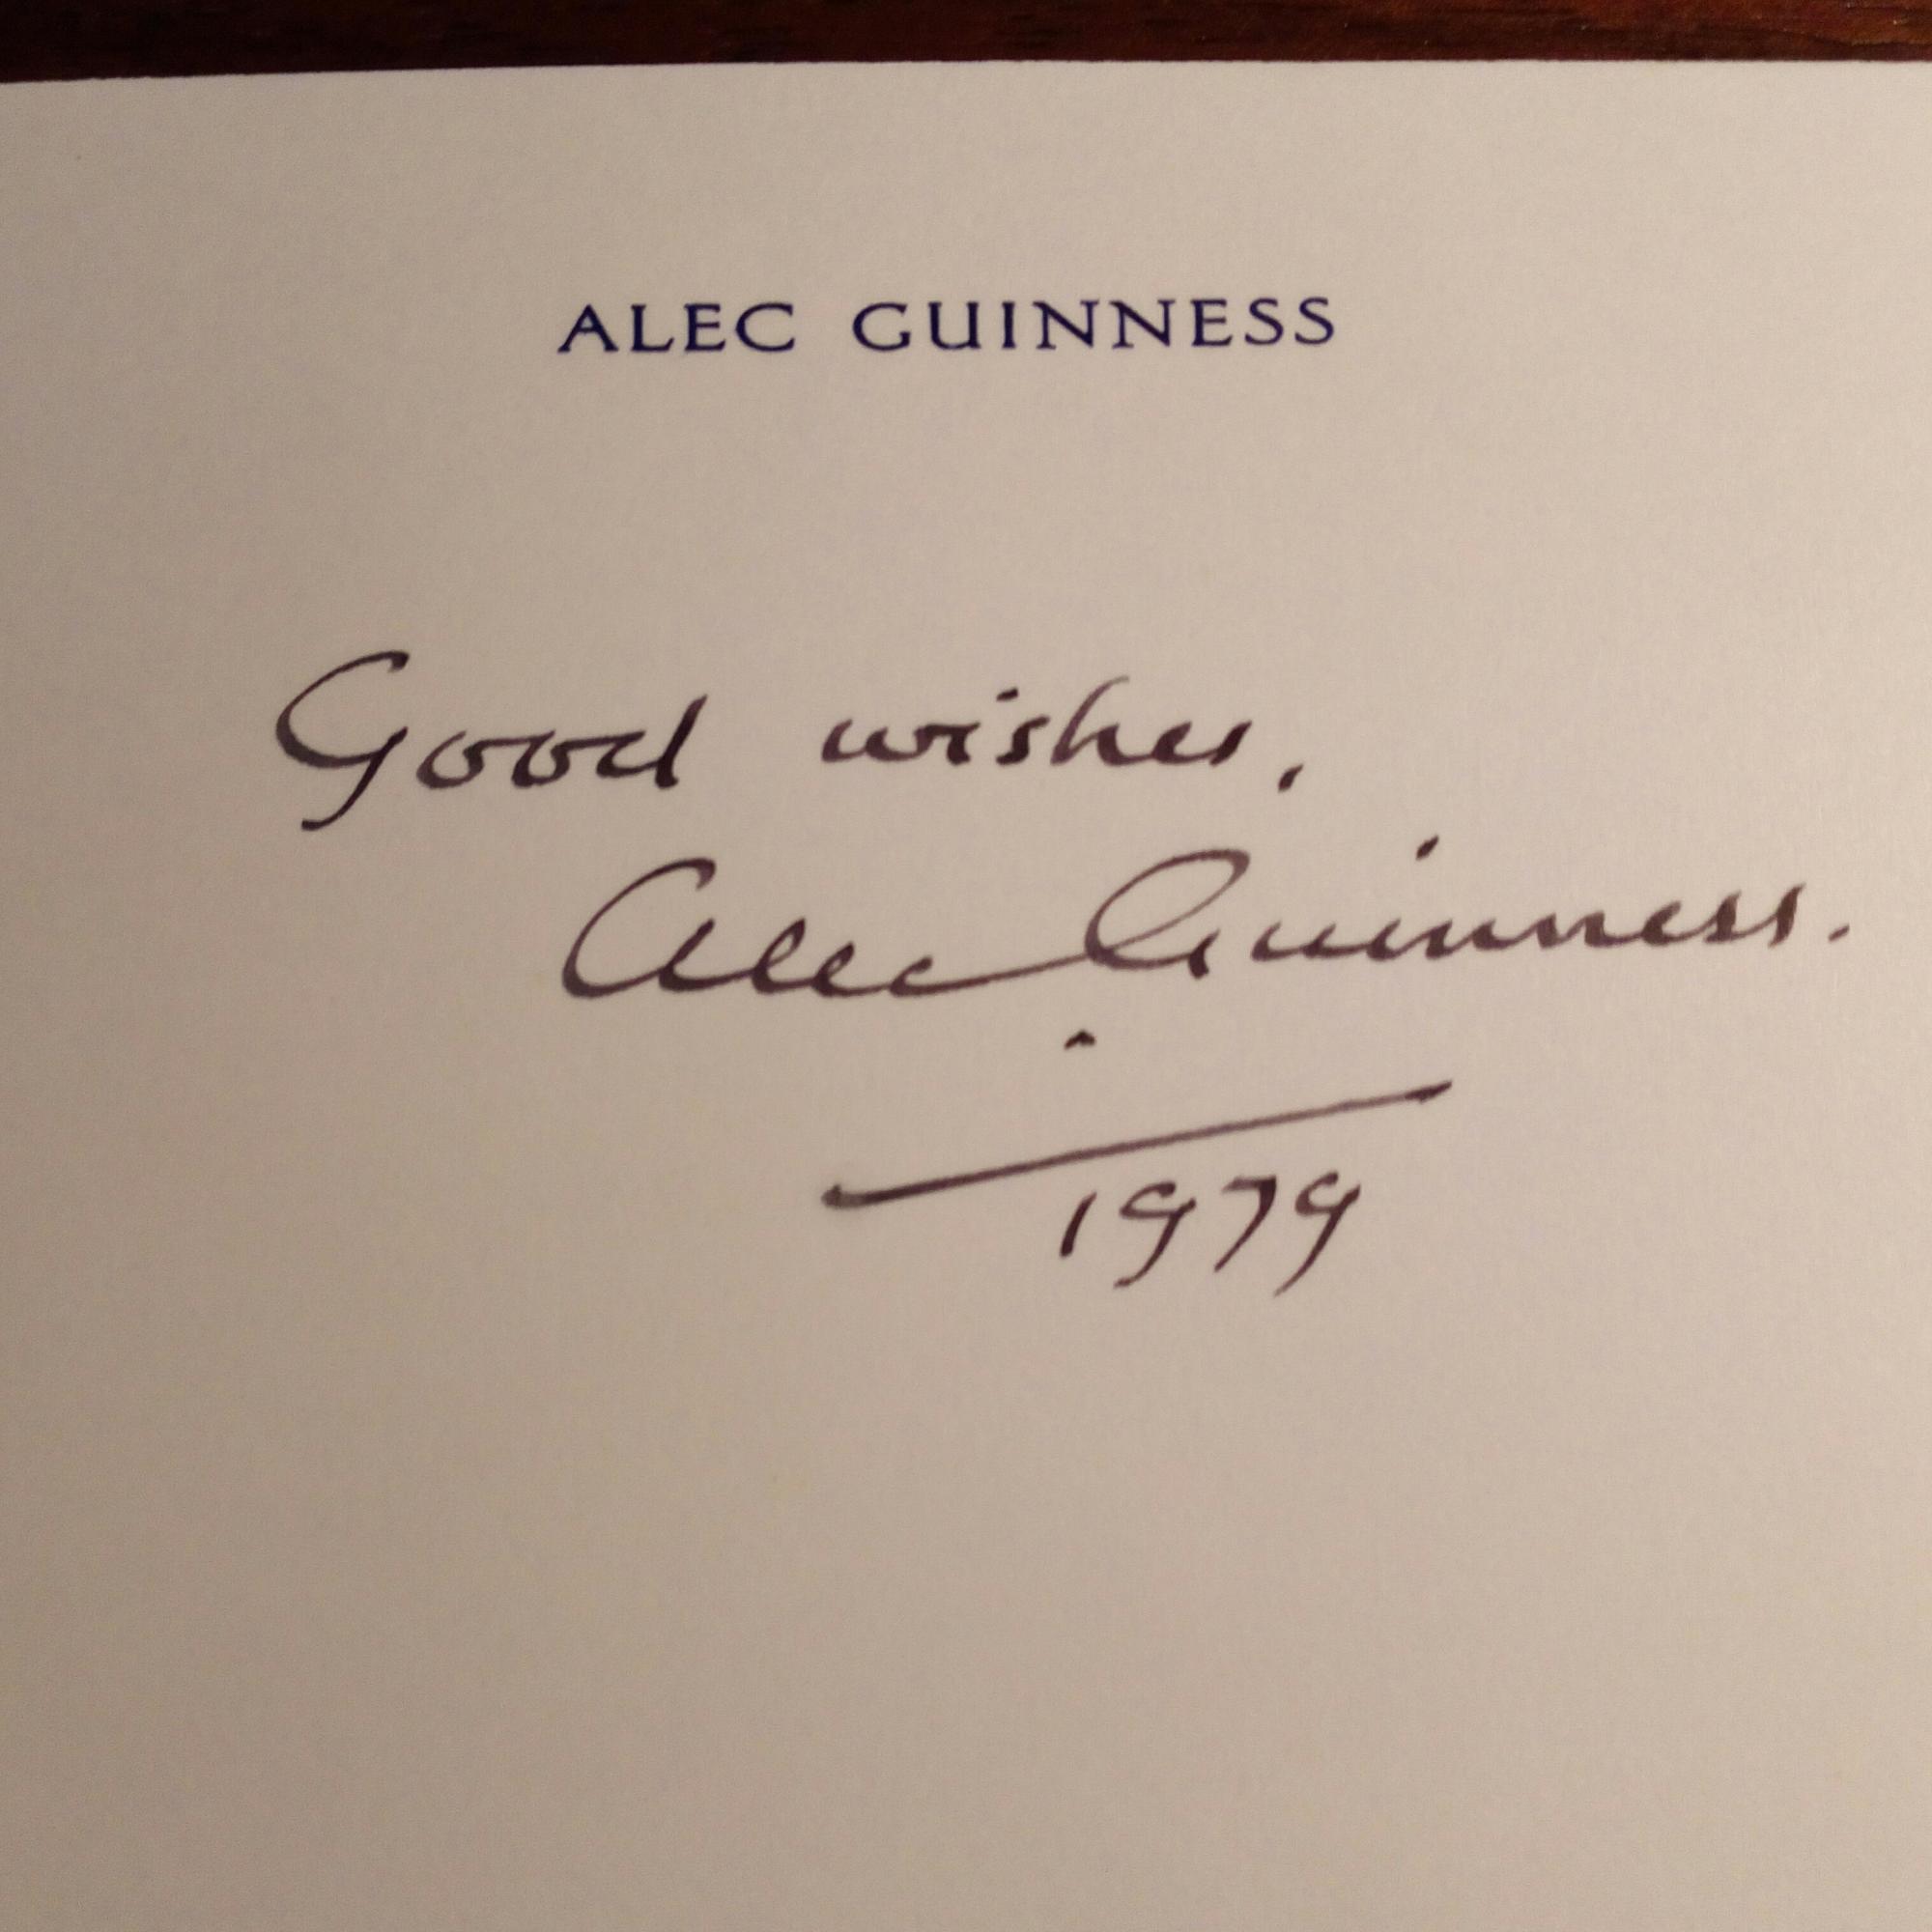 ALEC GUINNESS
Good wishes,
Alec Guinness.
1979